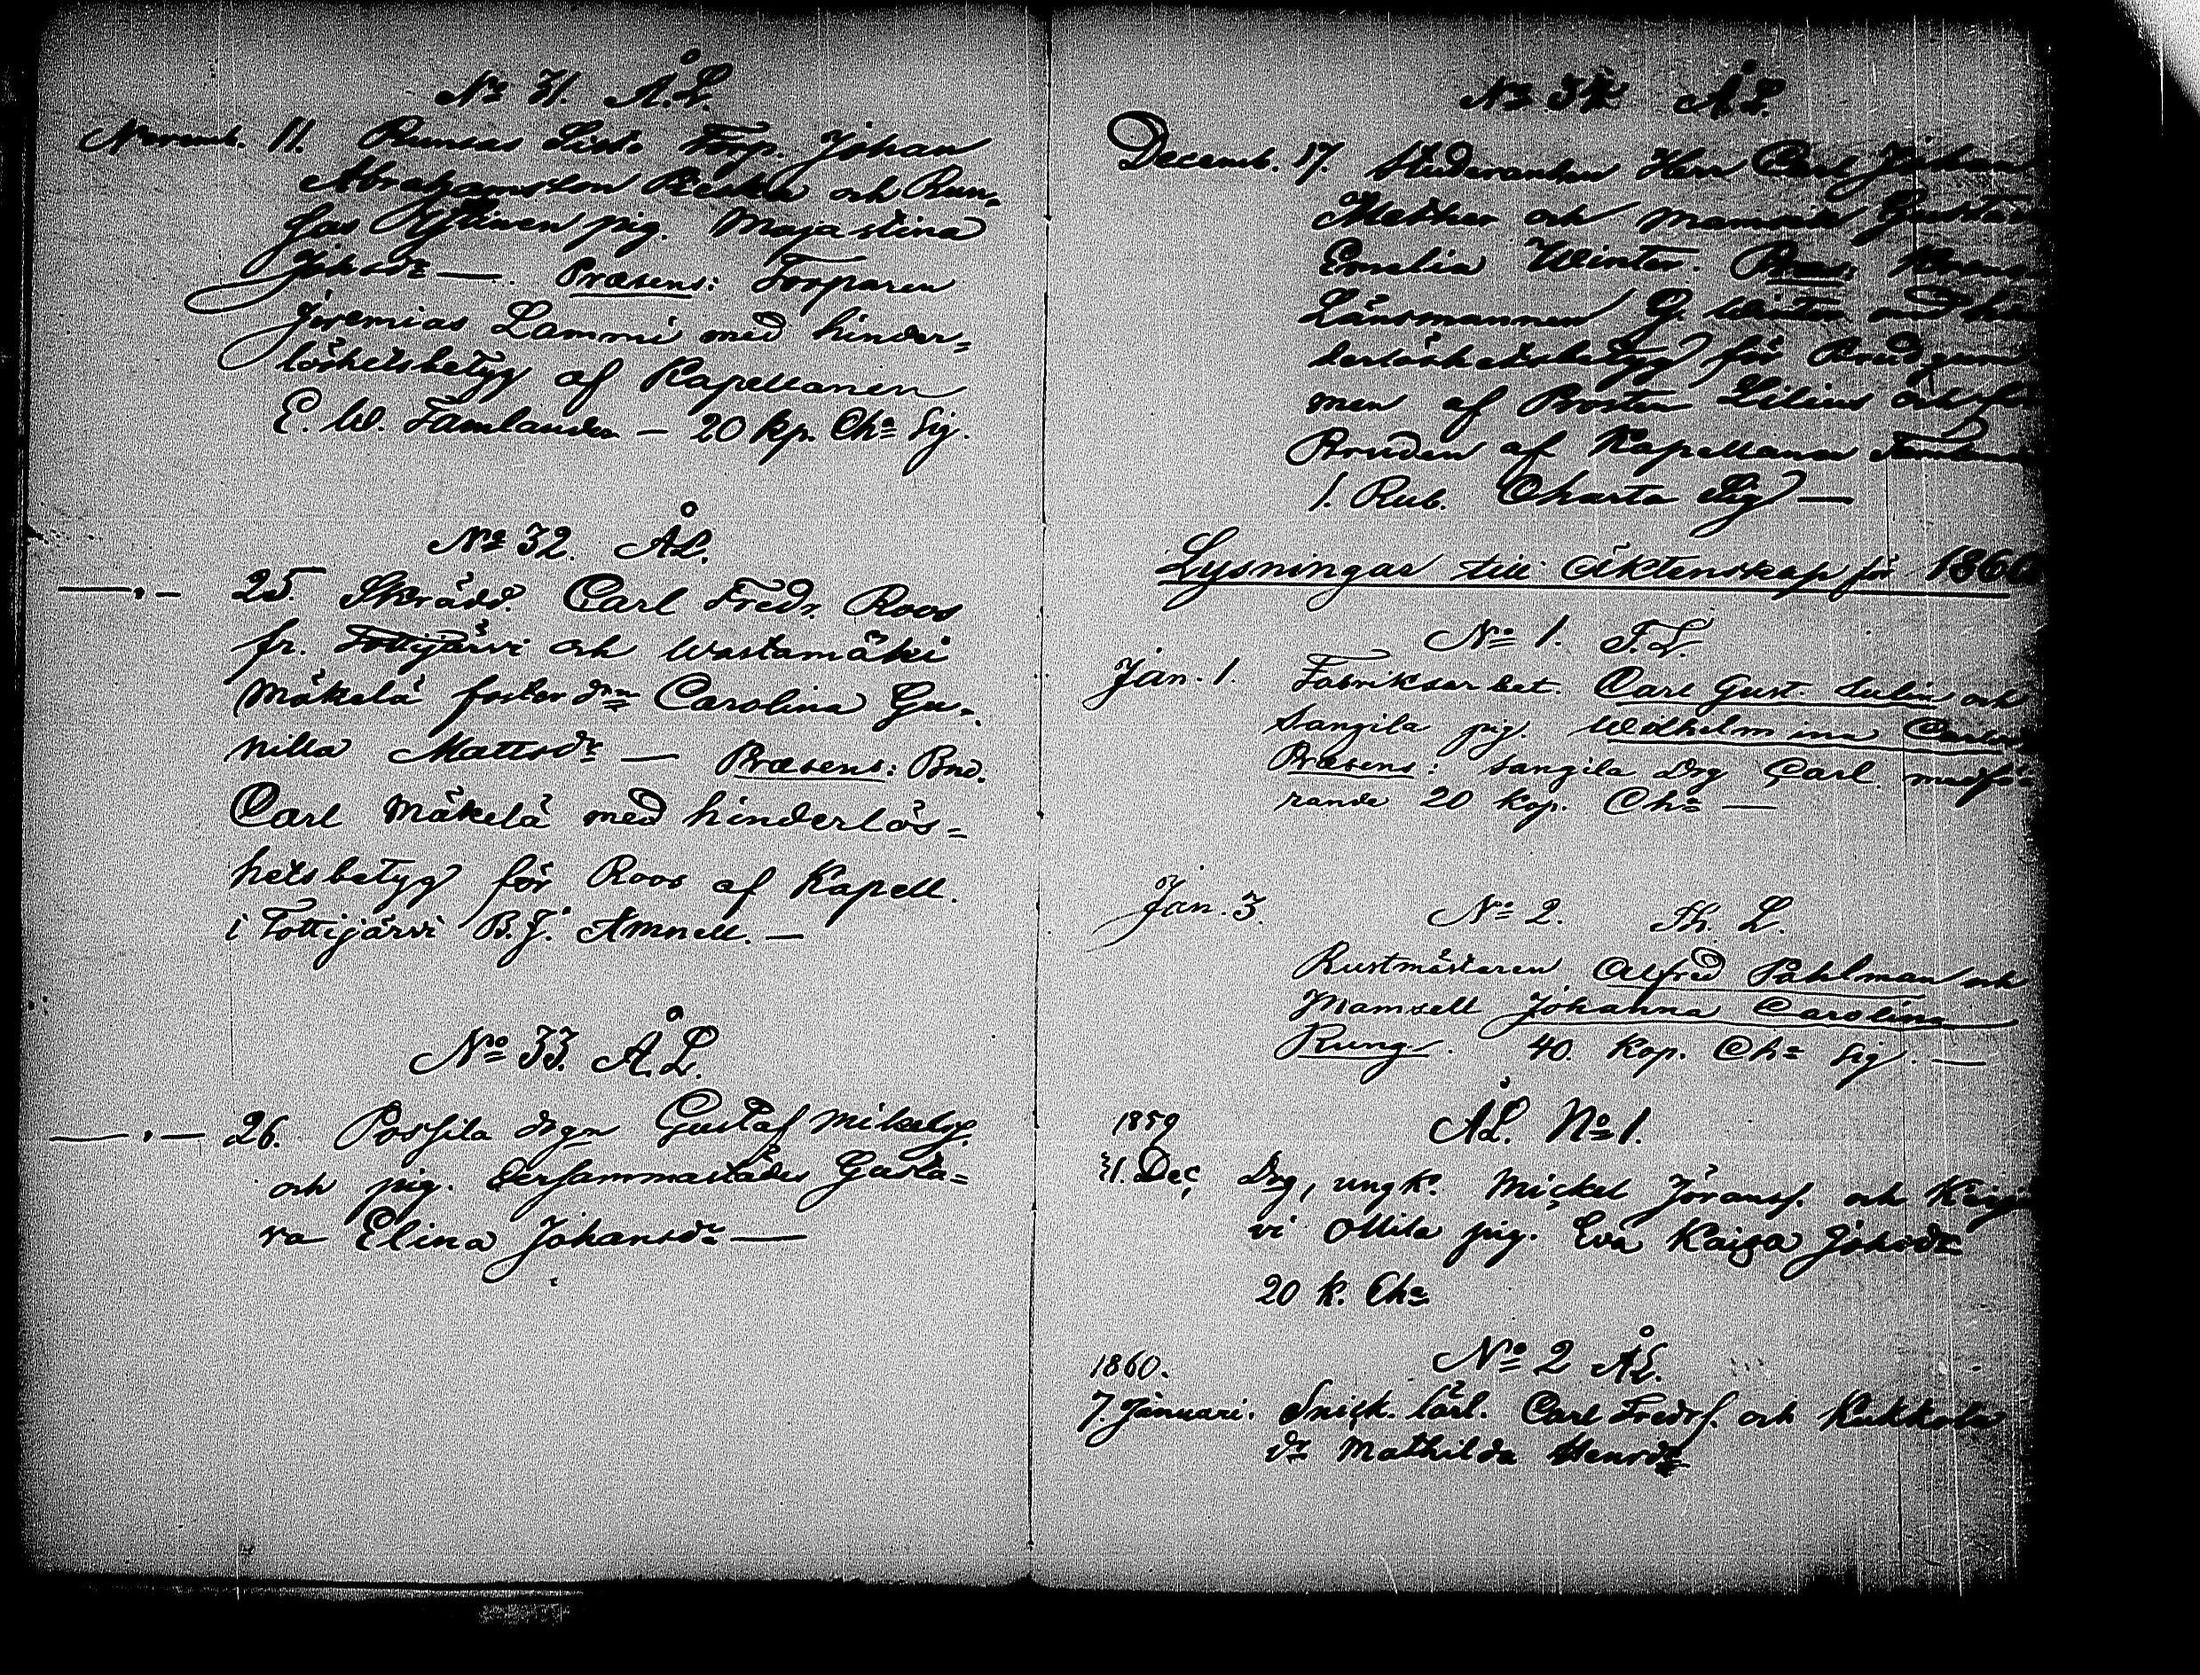 No 31. Å.L.
Novemb. 11. Runsas Sist. Torp. Johan
Abrahamsson och Run-
sas pig. Majastina
Johsdr — Præsens: Torparen
Jeremias Lammi med hinder-
löshetsbetyg af Kapellanen
E. W. Tamlander — 20 kp. Cha Sig.
No 32. ÅL.
—„— 25 Skrädd. Carl Fredr. Roos
fr. Tottijärvi och Wastamäki
Mäkelä foster dr Carolina Gu-
nilla Mattsdr — Præsens: Bnd.
Carl Mäkelä med hinderlös-
hetsbetyg för Roos af Kapell.
i Tottijärvi B.J. Amnell. —
No 33. Å.L.
—„— 26. Possila drgn Gustaf Mikelss.
och pig. dersammastädes Gusta-
va Elina Johansdr —
No 34 ÅL.
Decemb. 17. Studeranden Herr Carl Johan
och Mamsell Gustava
Emelia Winter. Præs: Krono
Länsmannen G. Winter med hin
derlöshetsbetyg för Brudgum
men af Prosten Lilius och för
Bruden af Kapellanen Tamlander
1. Rub. Charta Sig —
Lysningar till äktenskap för 1860
No 1. F.L.
Jan. 1. Fabriksarbet. Carl Gust. och
Sangila pig. Wilhelmina Carlsdr
Præsens: Sangila Drg Carl medfö
rande 20 Kop. Cha —
Jan. 3. No 2. Th. L.
Rustmästaren Alfred Påhlman och
Mamsell Johanna Carolina
Rung. 40. Kop. Cha Sig. —
1859 ÅL. No 1.
31. Dec Drg, ungk. Mickel Jöranss. och Keija
vi Ollila pig. Eva Kaisa Johsdr
20 K. Cha
1860. No 2 ÅL.
7. Januari. Snick. lärl. Carl Fredrs. och Kukkola
dr Mathilda Henrdr